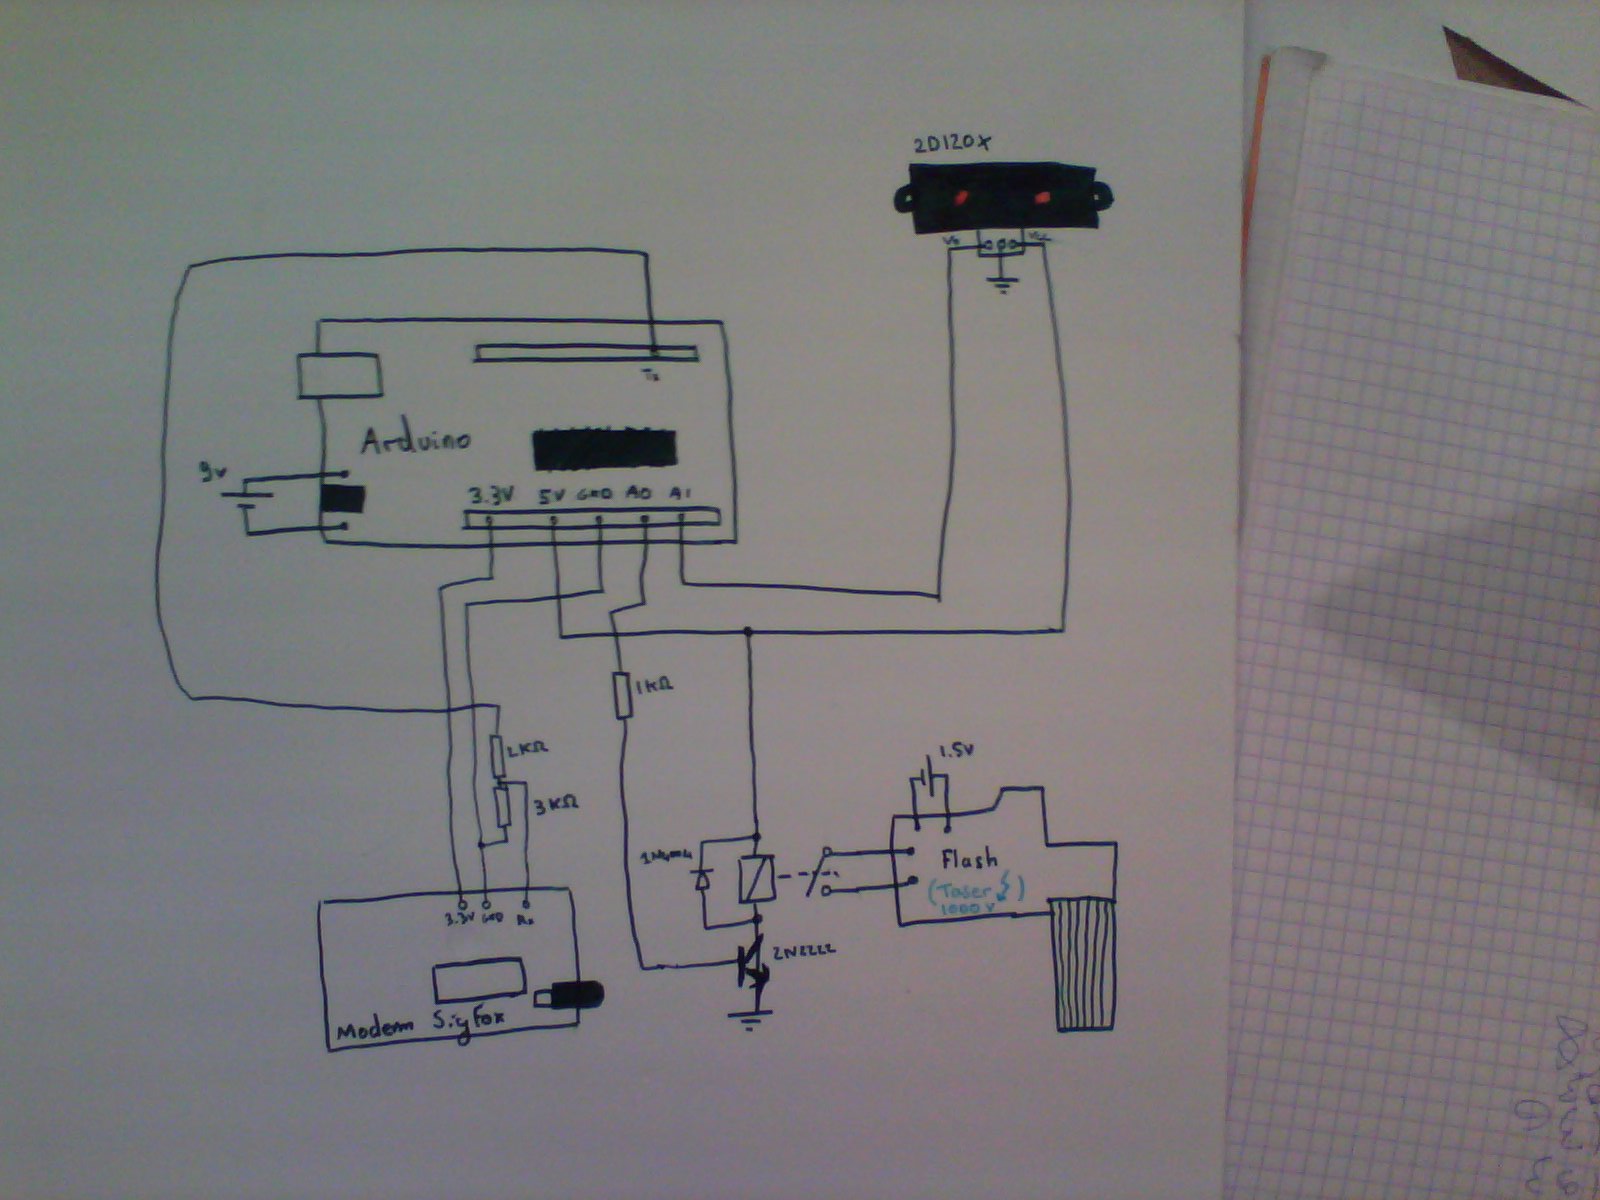 2D120X
Vo
Vcc
Tx
Arduino
9v
3.3V 5V GND A0 A1
1KΩ
2KΩ
3KΩ
1.5V
Flash
(Taser)
1000 V
1N4004
2N2222
3.3V GND Rx
Modem SigFox